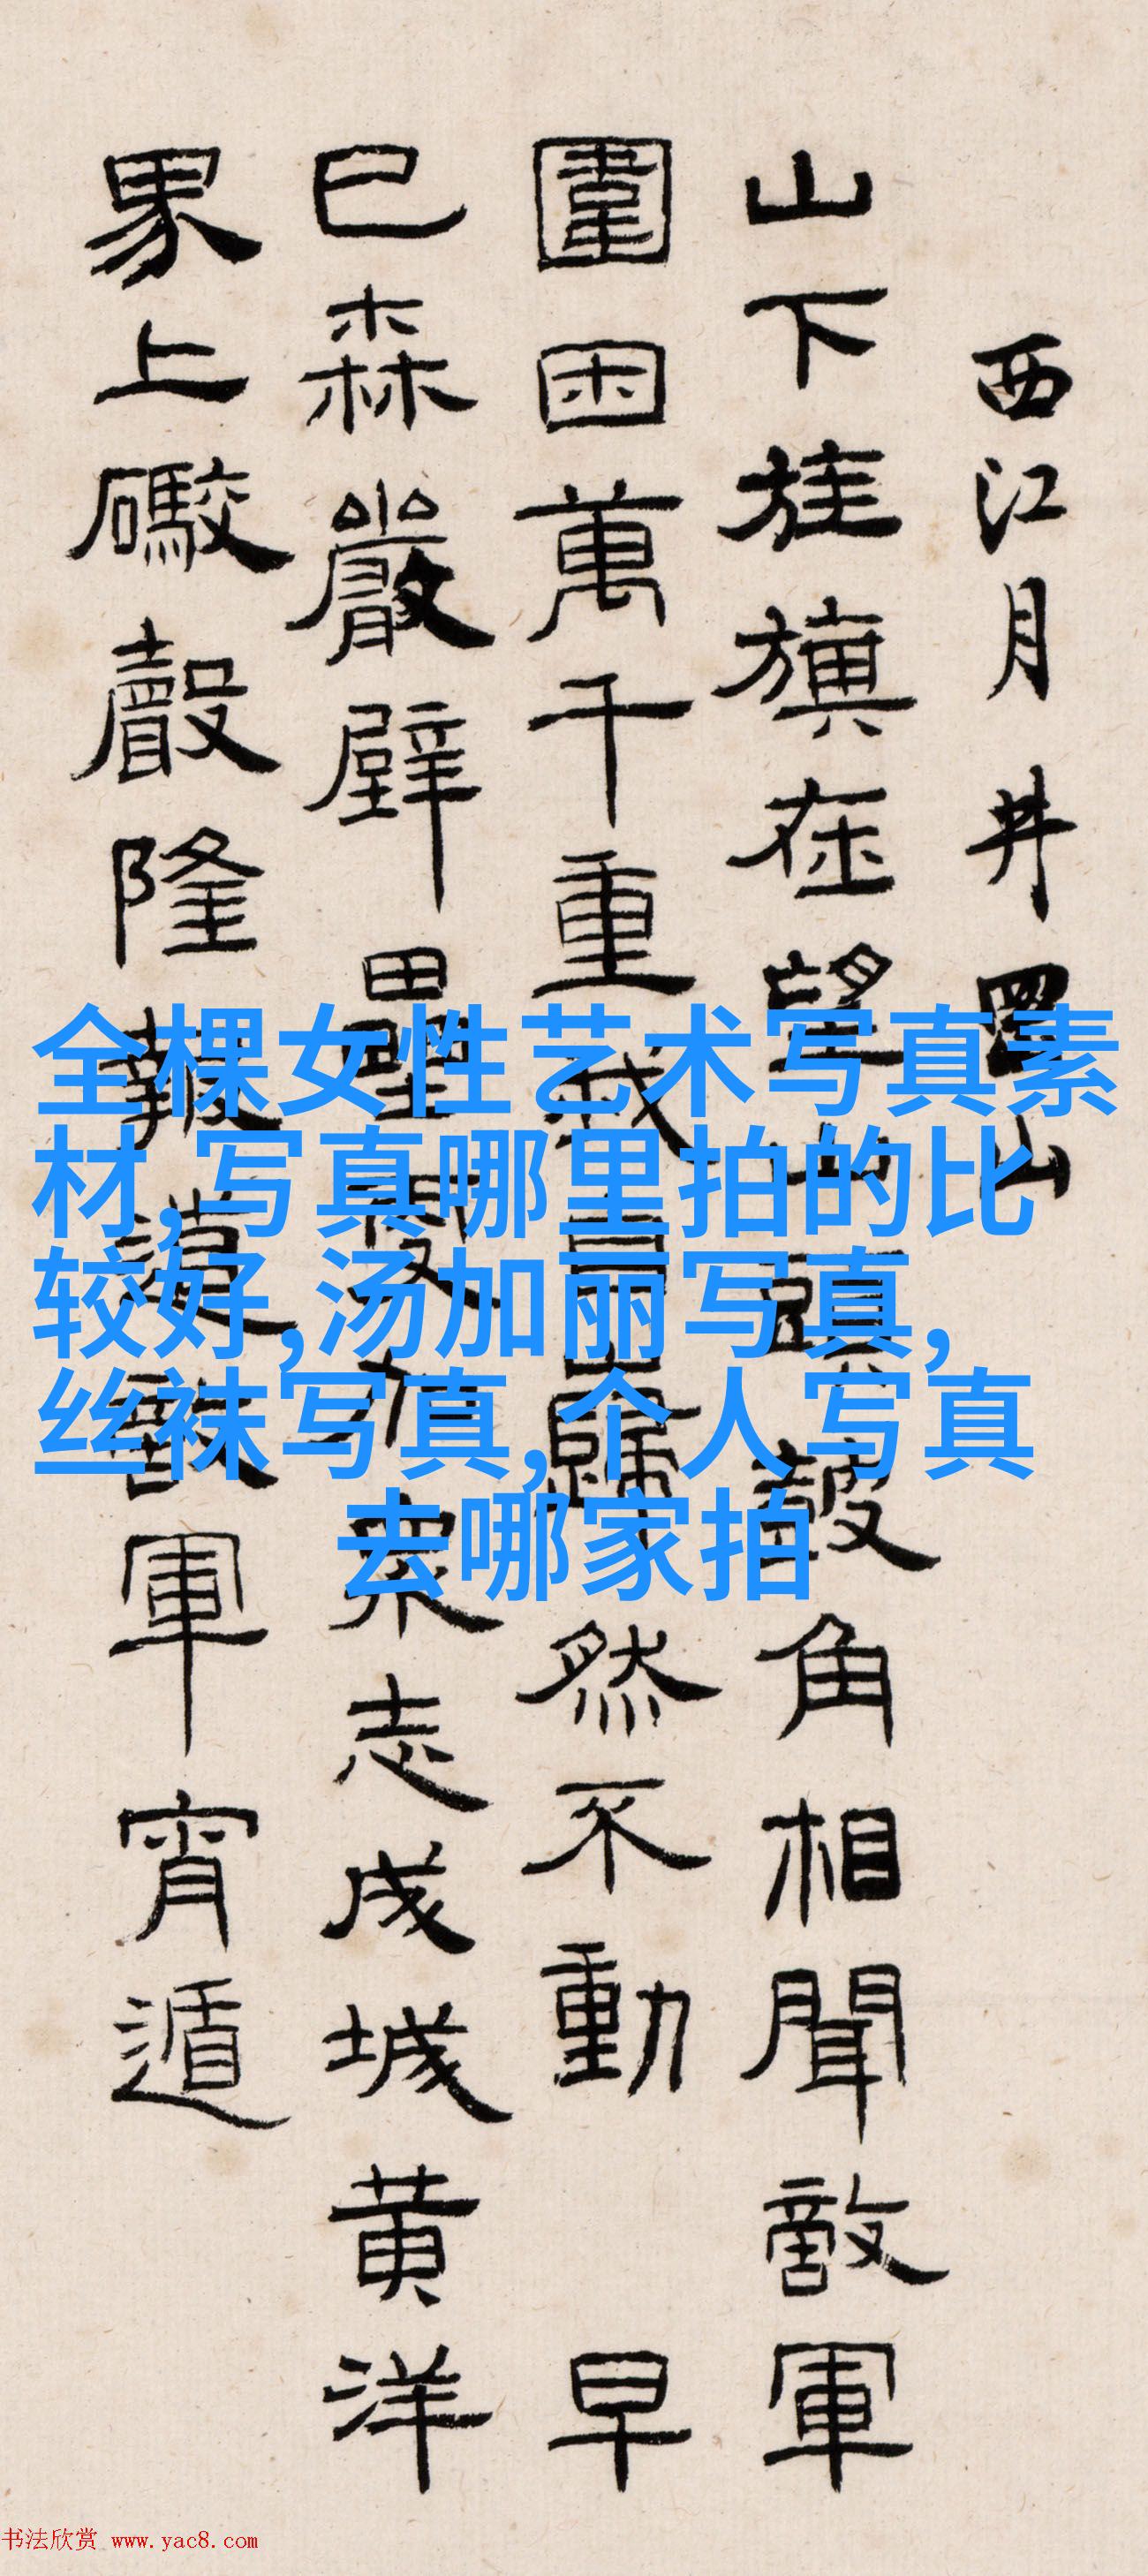 西江月 井岡山
山下旌旗在望山頭鼓角相聞敵軍
圍困萬千重我自巋然不動 早
已森嚴壁壘更加眾志成城黃洋
界上礮聲隆報道敵軍宵遁
全棵女性艺术写真素
材,写真哪里拍的比
较好,汤加丽写真,
丝袜写真,个人写真
去哪家拍
书法欣赏 www.yac8.com